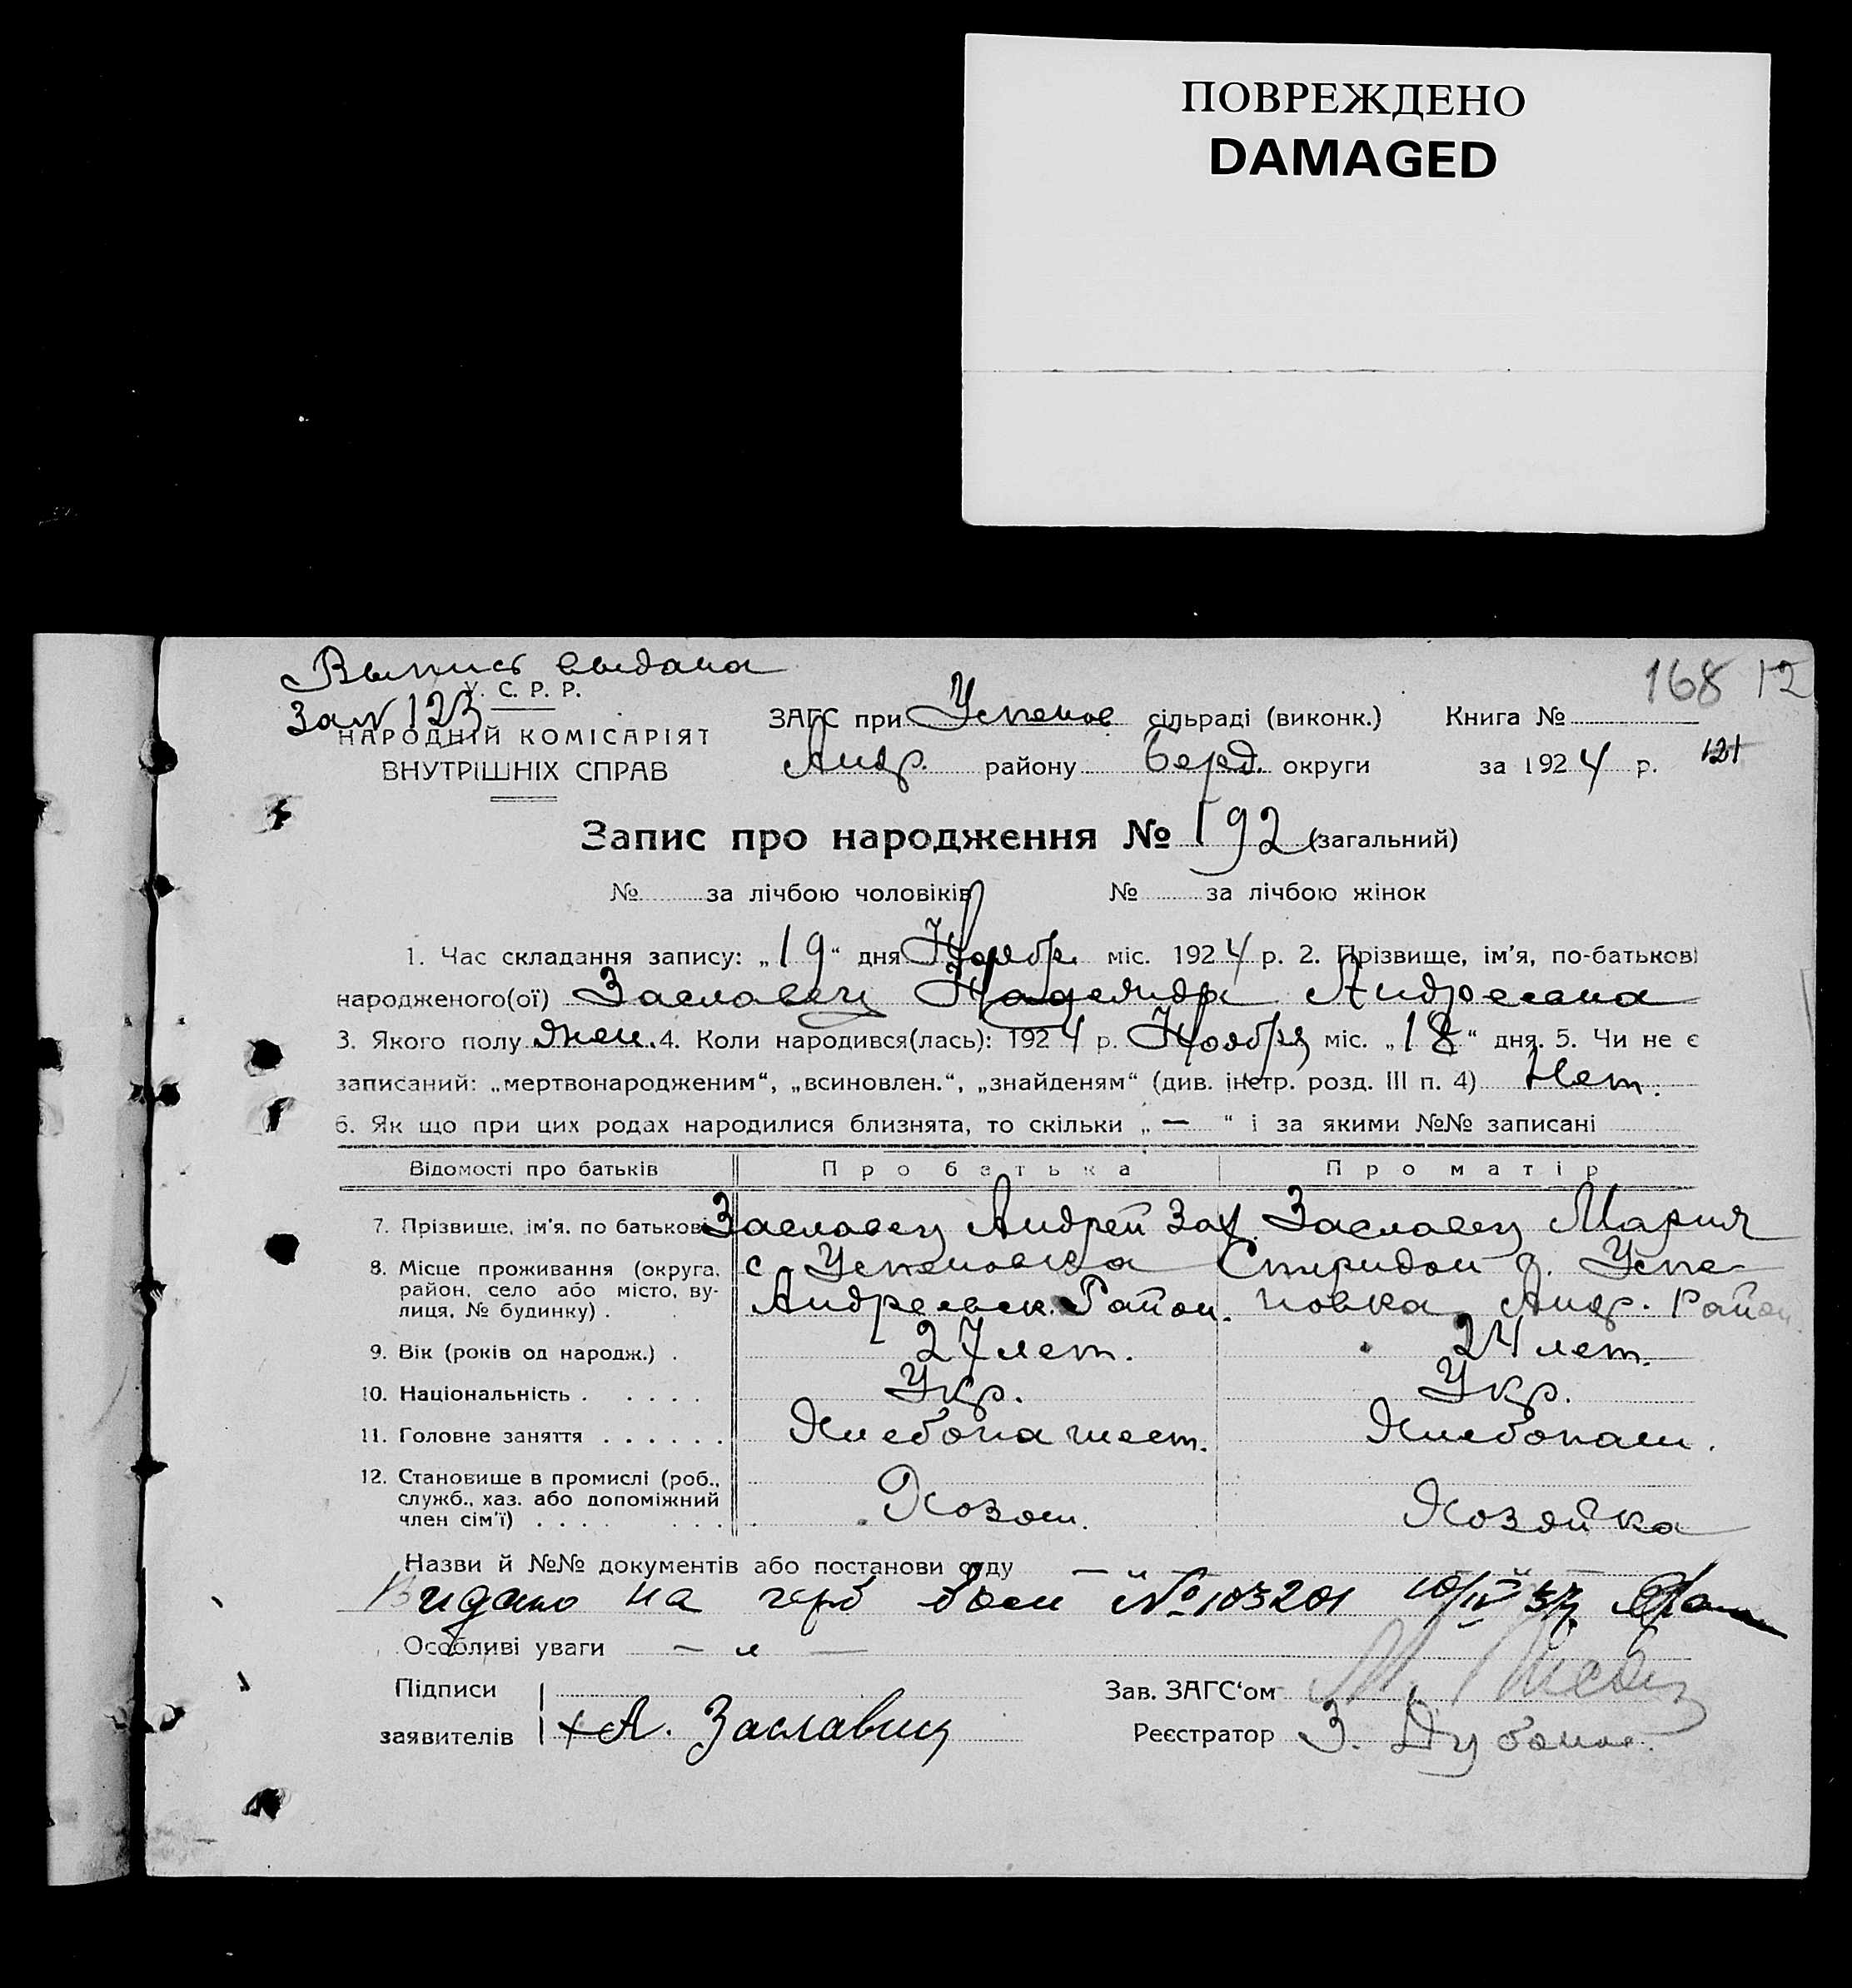 ПОВРЕЖДЕНО
DAMAGED
Выпись выдана
за № 123
168 12
У. С. Р. Р.
НАРОДНІЙ КОМІСАРІЯТ
ВНУТРІШНІХ СПРАВ
ЗАГС при Успенов сільраді (виконк.) Книга №
Андр. району Берд. округи за 1924 р. 121
Запис про народження № 192 (загальний)
№ за лічбою чоловіків № за лічбою жінок
1. Час складання запису: „19“ дня Ноябр. міс. 1924 р. 2. Прізвище, ім'я, по-батькові
народженого(ої) Заславец Андреевна
3. Якого полу жен. 4. Коли народився(лась): 1924 р. Ноября міс. „18“ дня. 5. Чи не є
записаний: „мертвонародженим“, „всиновлен.“, „знайденям“ (див. інстр. розд. III п. 4) Нет.
6. Як що при цих родах народилися близнята, то скільки „ — “ і за якими №№ записані
Відомості про батьків Про батька Про матір
7. Прізвище, ім'я, по батькові Заславец Андрей Зах. Заславец Мария
8. Місце проживання (округа, с. Успеновка Спиридон с. Успе-
район, село або місто, ву- Андреевск. Район. новка Андр. Район.
лиця, № будинку) .
9. Вік (років од народж.) . 27 лет. 24 лет.
10. Національність . . . . . Укр. Укр.
11. Головне заняття . . . . . . Хлебопашест. Хлебопаш.
12. Становище в промислі (роб.,
служб., хаз. або допоміжний Хозяин. Хозяйка
член сім'ї) . . . .
Назви й №№ документів або постанови суду — „ —
Видано на герб бл № 103201 10/IV 37
Особливі уваги — „ —
Підписи Зав. ЗАГС'ом
заявителів + А. Заславец Реєстратор З.